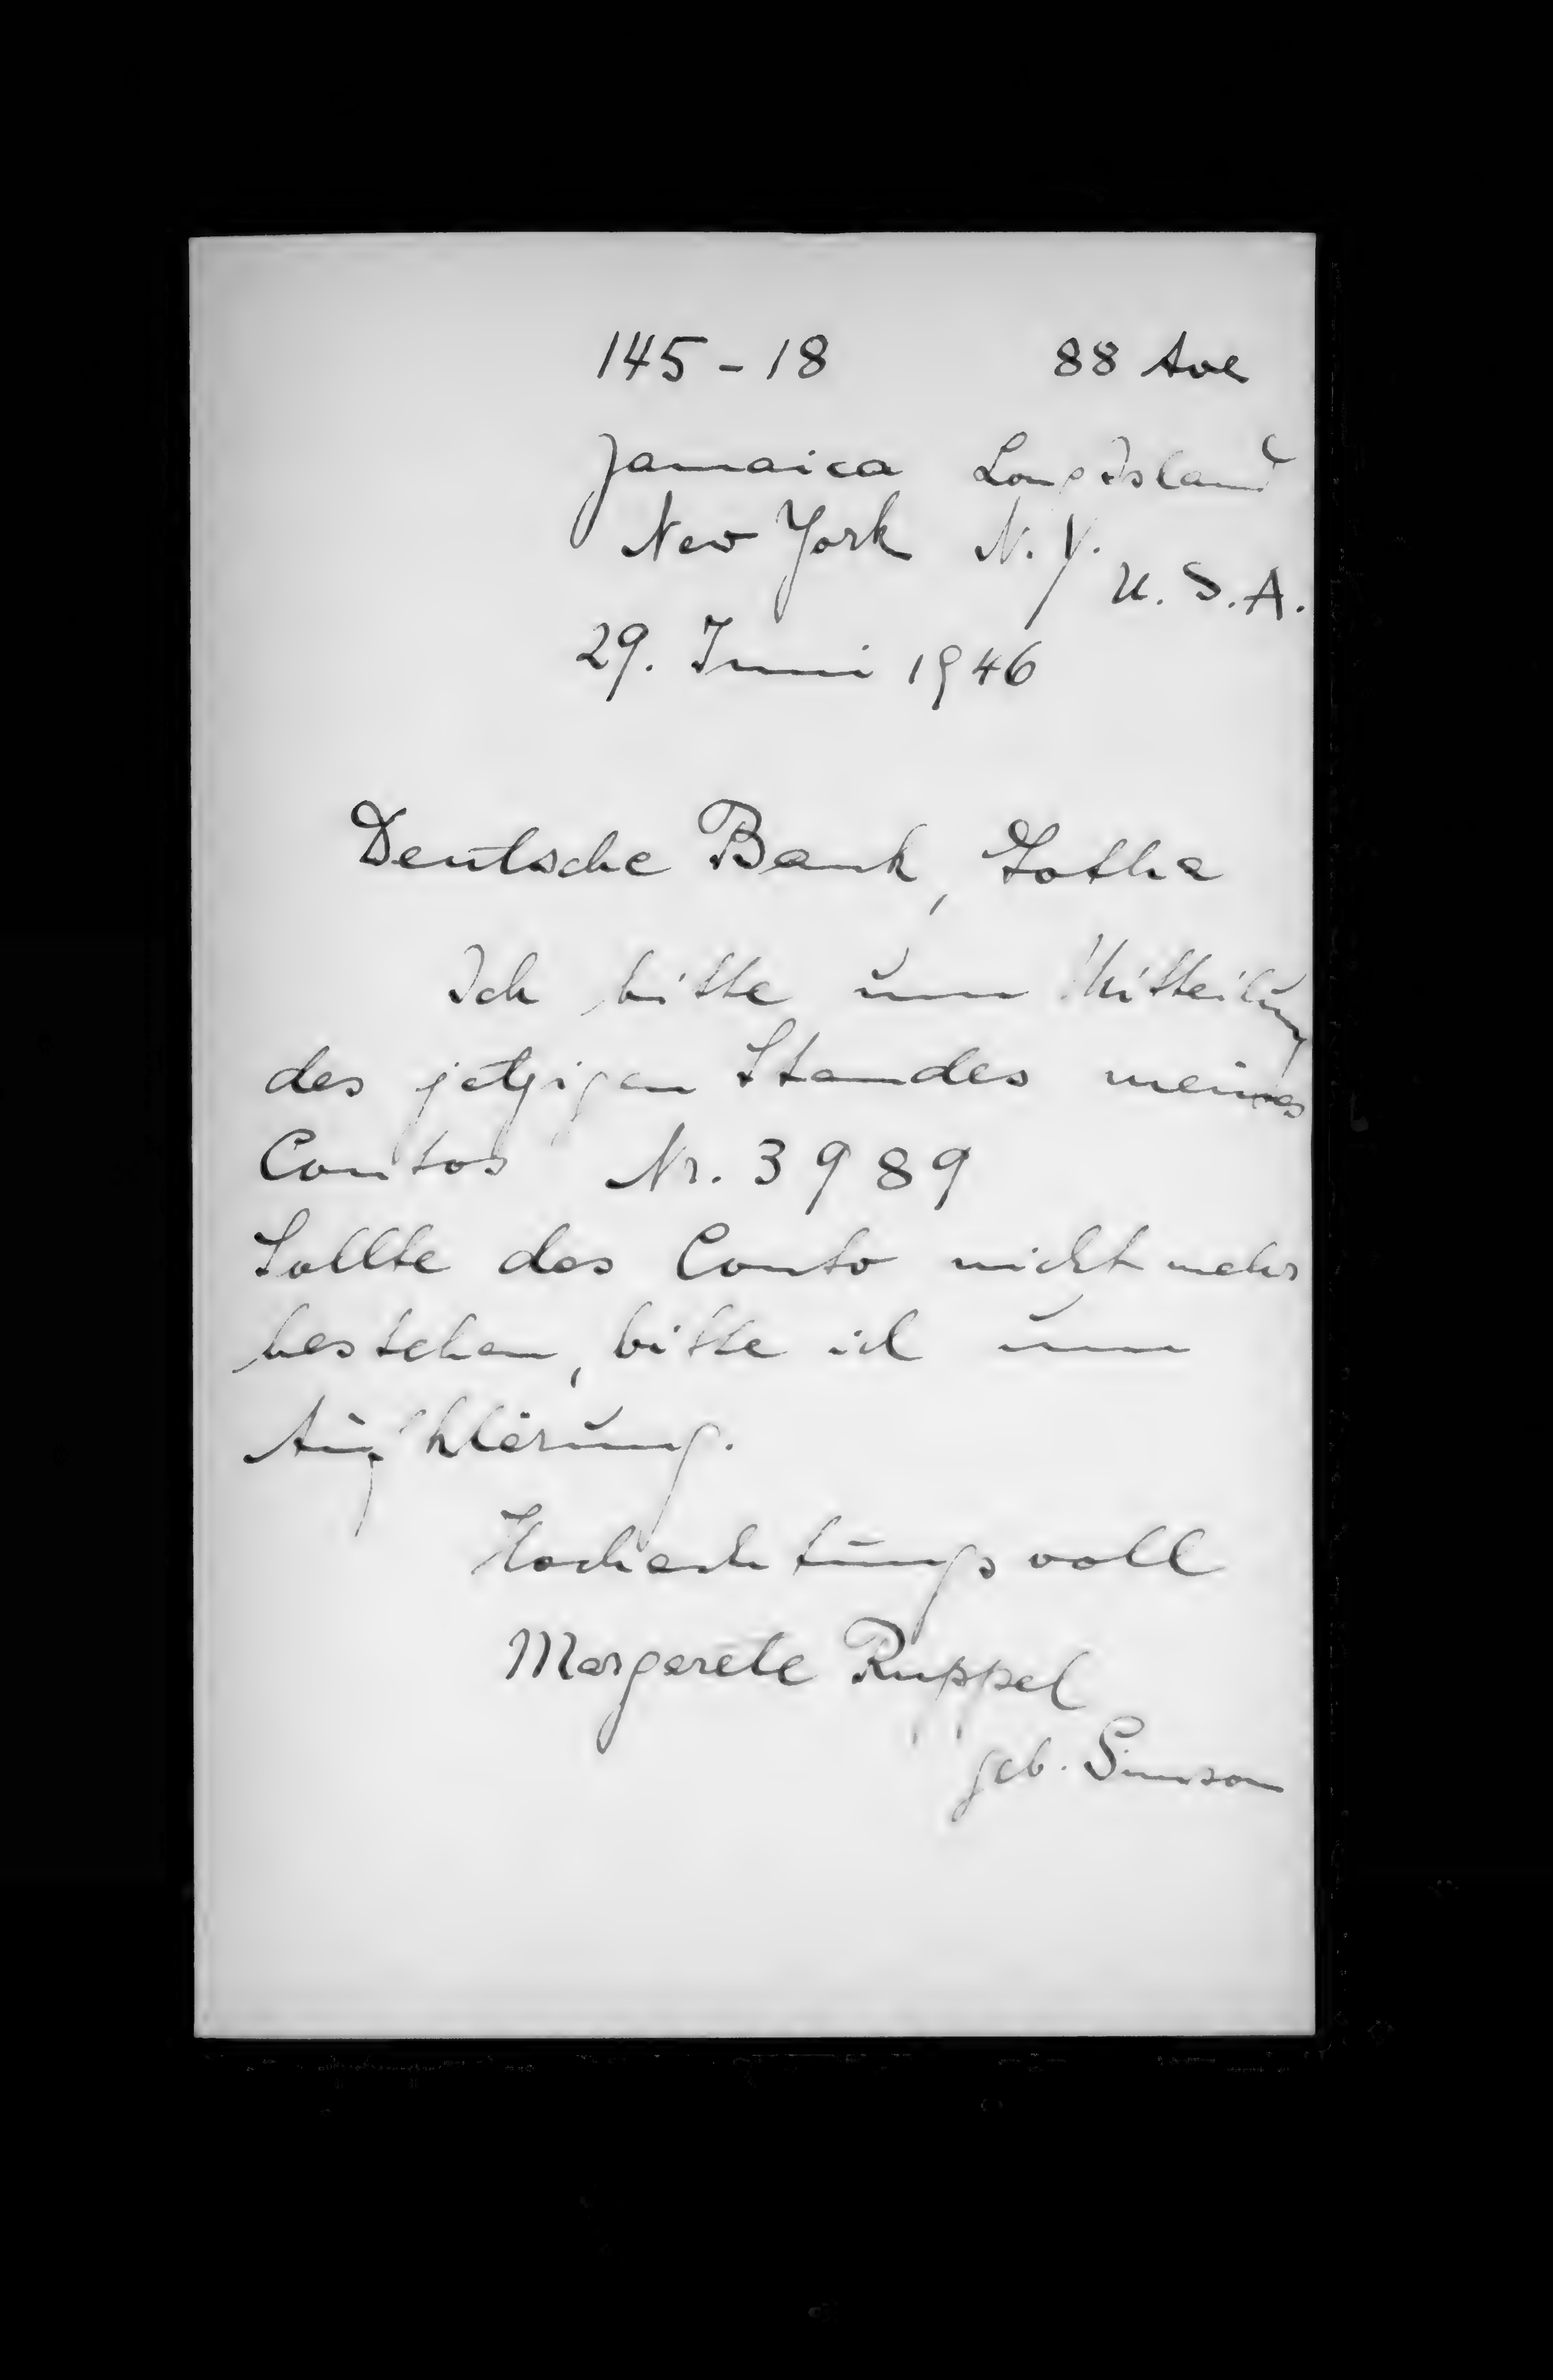 145-18 88 Ave
Jamaica Long Island
New York N.Y.
U.S.A.
29. Juni 1946
Deutsche Bank, Gotha
Ich bitte um Mitteilung
des jetzigen Standes meines
Contos Nr. 3989
Sollte das Conto nicht mehr
bestehen, bitte ich um
Aufklärung.
Hochachtungsvoll
Margarete Ruppel
geb. Simson